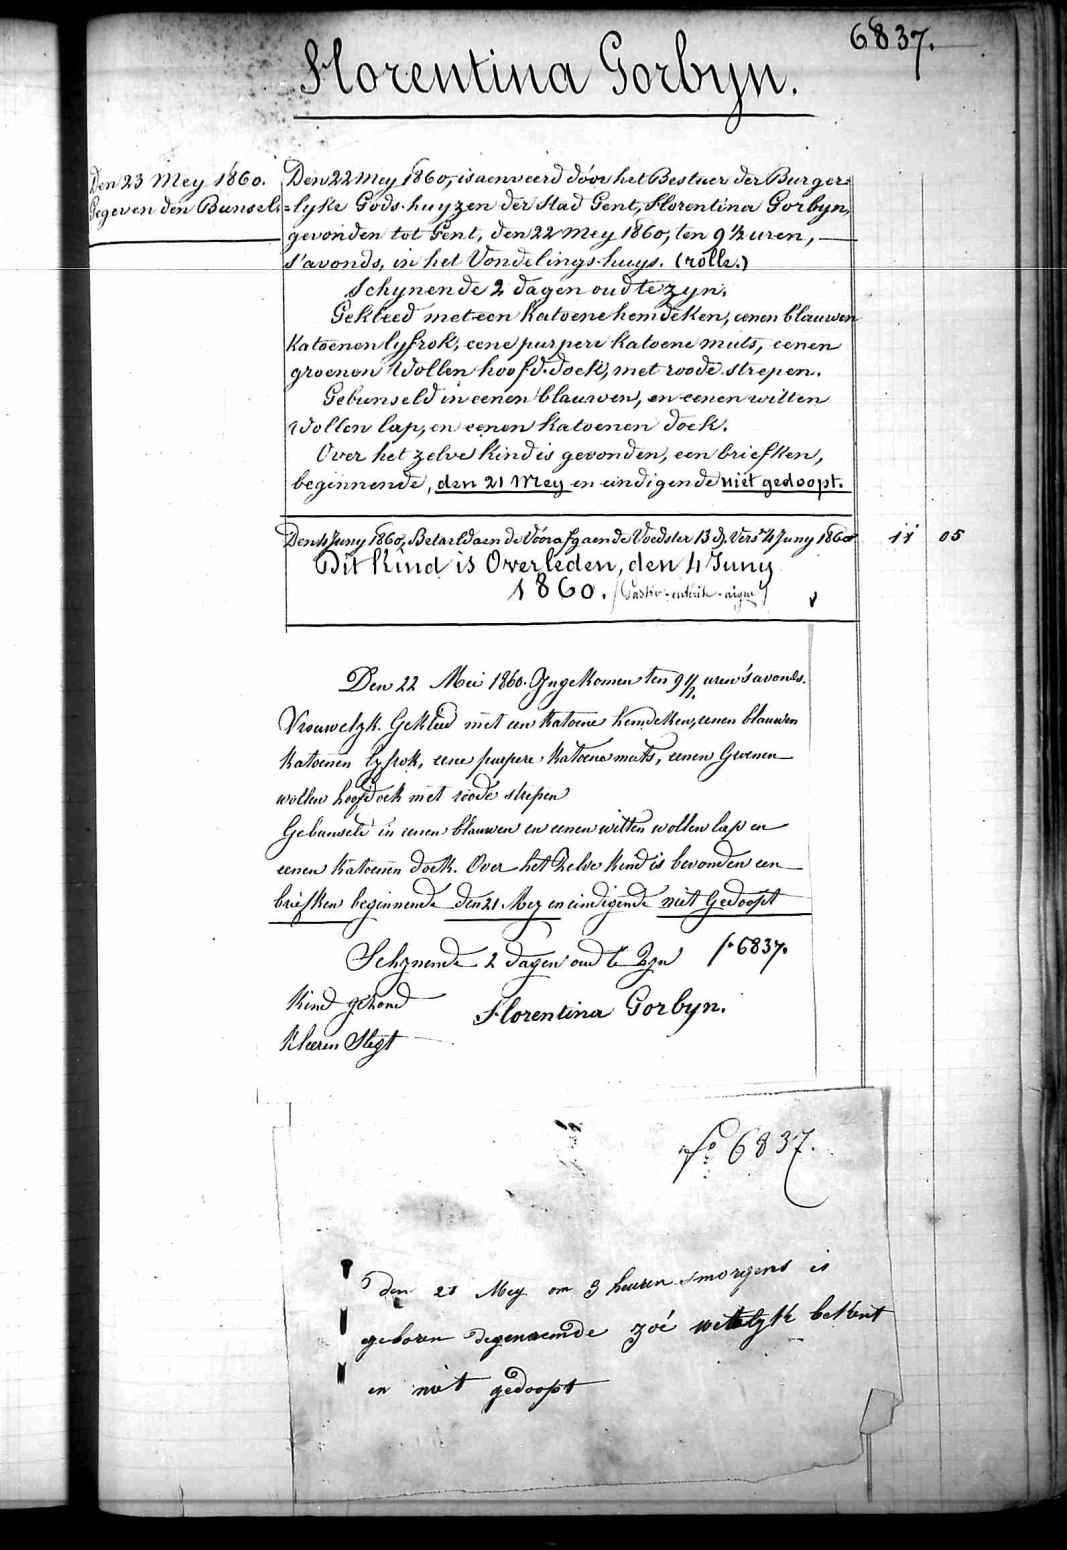 6837.
Florentina Gorbyn.
Den 23 Mey 1860.
Gegeven den Bunsel.
Den 22 mey 1860, is aenveerd dóór het Bestuer der Burger=
=lyke Gods-huyzen der Stad Gent, Florentina Gorbyn,
gevonden tot Gent, den 22 mey 1860, ten 9 1/2 uren,
s'avonds, in het Vondelings-huys. (rolle.)
Schynende 2 dagen oud te zyn.
Gekleed met een Katoene hemdeken, eenen blauwen
Katoenen lyfrok, eene purpere Katoene muts, eenen
groenen Wollen hoofd-doek, met roode strepen.
Gebunseld in eenen blauwen, en eenen witten
Wollen lap, en eenen katoenen doek.
Over het zelve Kind is gevonden, een briefken,
beginnende, den 21 Mey en eindigende niét gedoopt.
Den 4 Juny 1860, Betaeld aen de Vóórafgaende Voedster 13 d. Vers. 4 Juny 1860 11 05
Dit Kind is Overleden, den 4 Juny
1860. (Gastro-entérite-aigue)
Den 22 Mei 1860. Ingekomen ten 9 1/2 uren s'avonds.
Vrouwelyk. Gekleed mét een Katoene hemdeken, eenen blauwen
Katoenen lyfrok, eene purpere Katoene muts, eenen Groenen
wollen hoofdoek mét roode strepen
Gebunseld in eenen blauwen en eenen witten wollen lap en
eenen Katoenen doek. Over het Zelve Kind is bevonden een
briefken beginnende den 21 Mey en eindigende niet Gedoopt
Schynende 2 dagen oud te Zyn f° 6837.
Kind gezond Florentina Gorbyn.
Kleeren Slegt
f° 6837.
den 21 Mey om 3 heuren smorgens is
geboren degenaemde zoé wettelyk bekent
en niet gedoopt